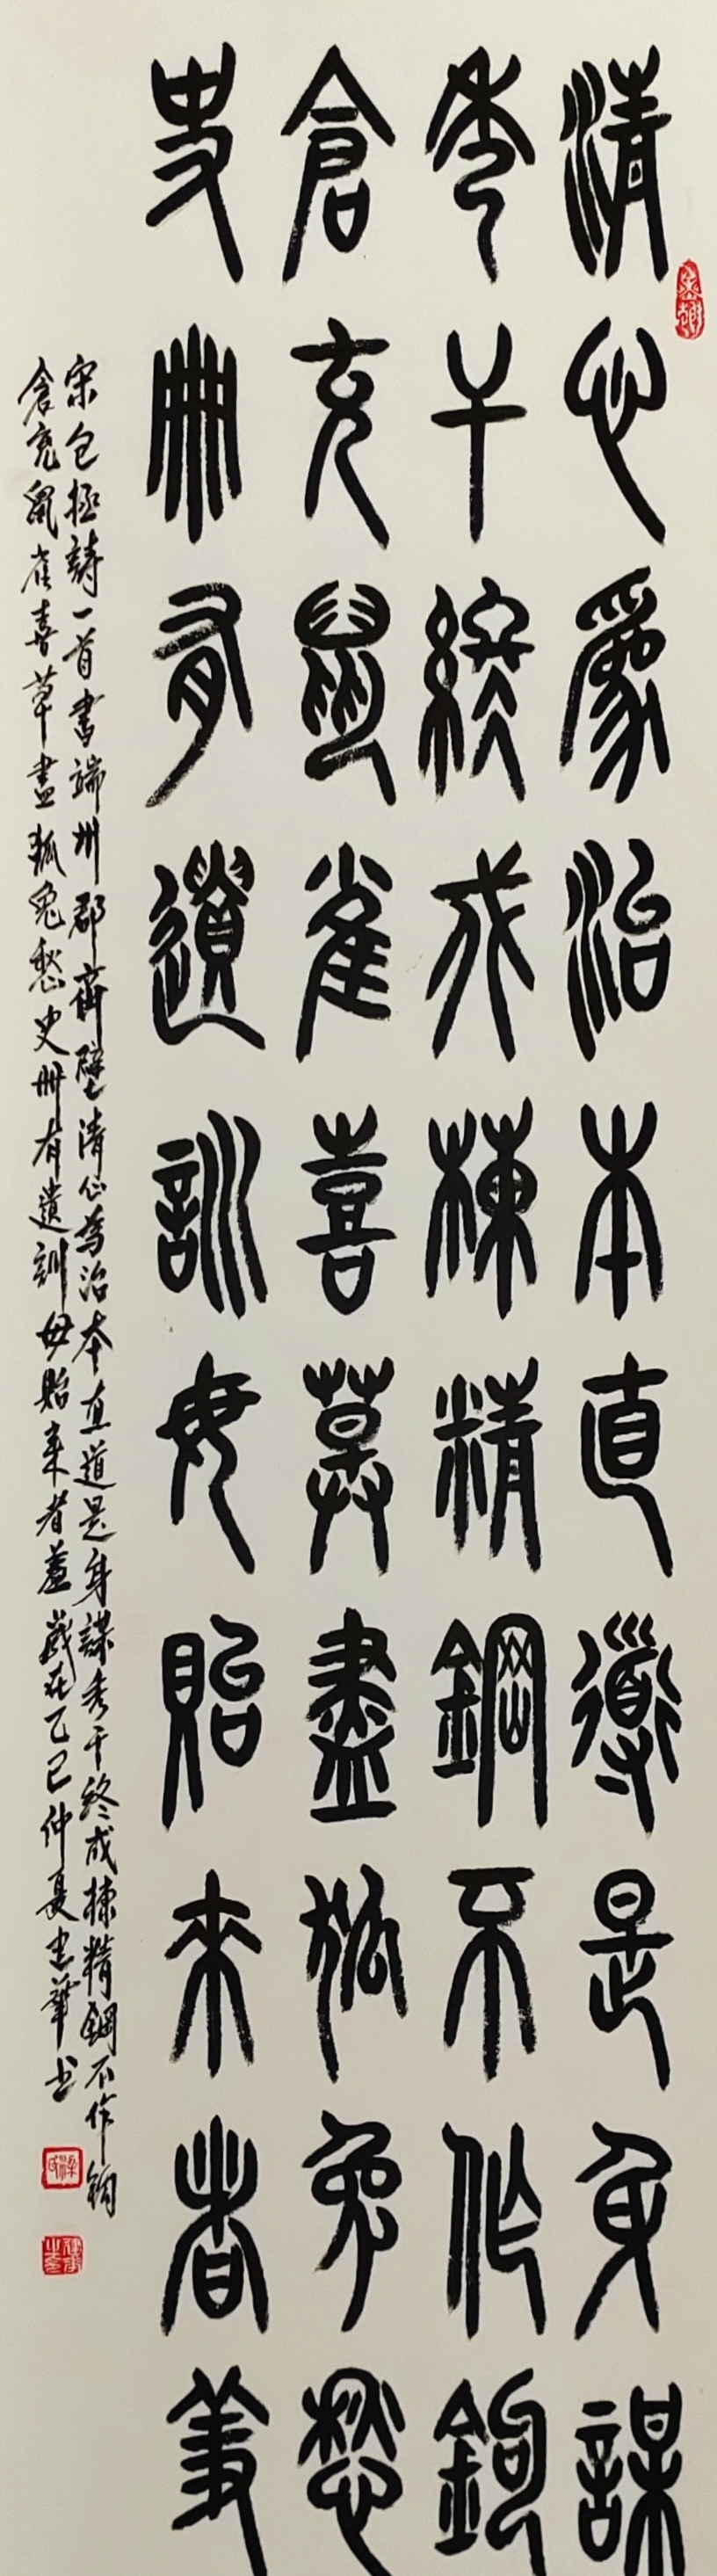 清心為治本直道是身謀
秀干終成棟精鋼不作鉤
倉充鼠雀喜草盡狐兔愁
史冊有遺訓毋貽來者羞
宋包拯詩一首書端州郡齋壁清心為治本直道是身謀秀干終成棟精鋼不作鉤
倉充鼠雀喜草盡狐兔愁史冊有遺訓毋貽來者羞歲在乙巳仲夏華书